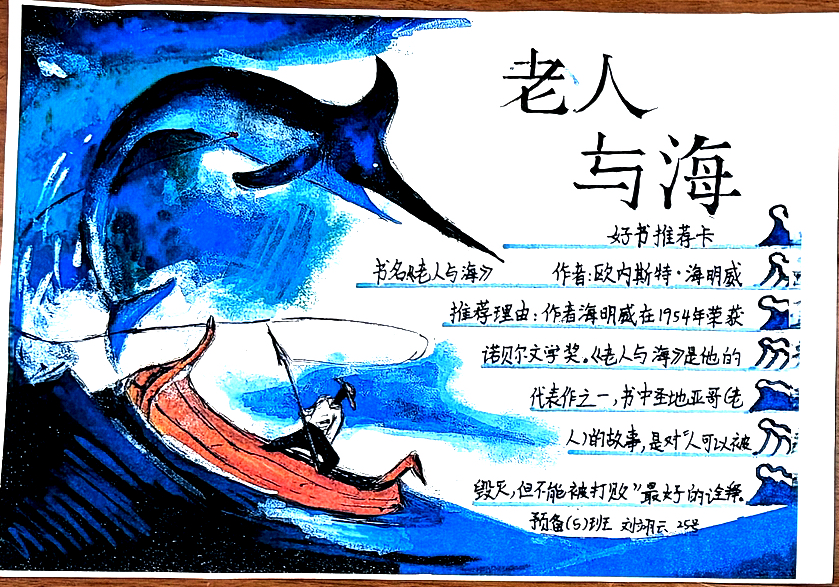 老人
与海
好书推荐卡
书名《老人与海》 作者:欧内斯特·海明威
推荐理由:作者海明威在1954年荣获
诺贝尔文学奖。《老人与海》是他的
代表作之一,书中圣地亚哥(老
人)的故事,是对“人可以被
毁灭,但不能被打败”最好的诠释。
预备(5)班 刘 云 25号